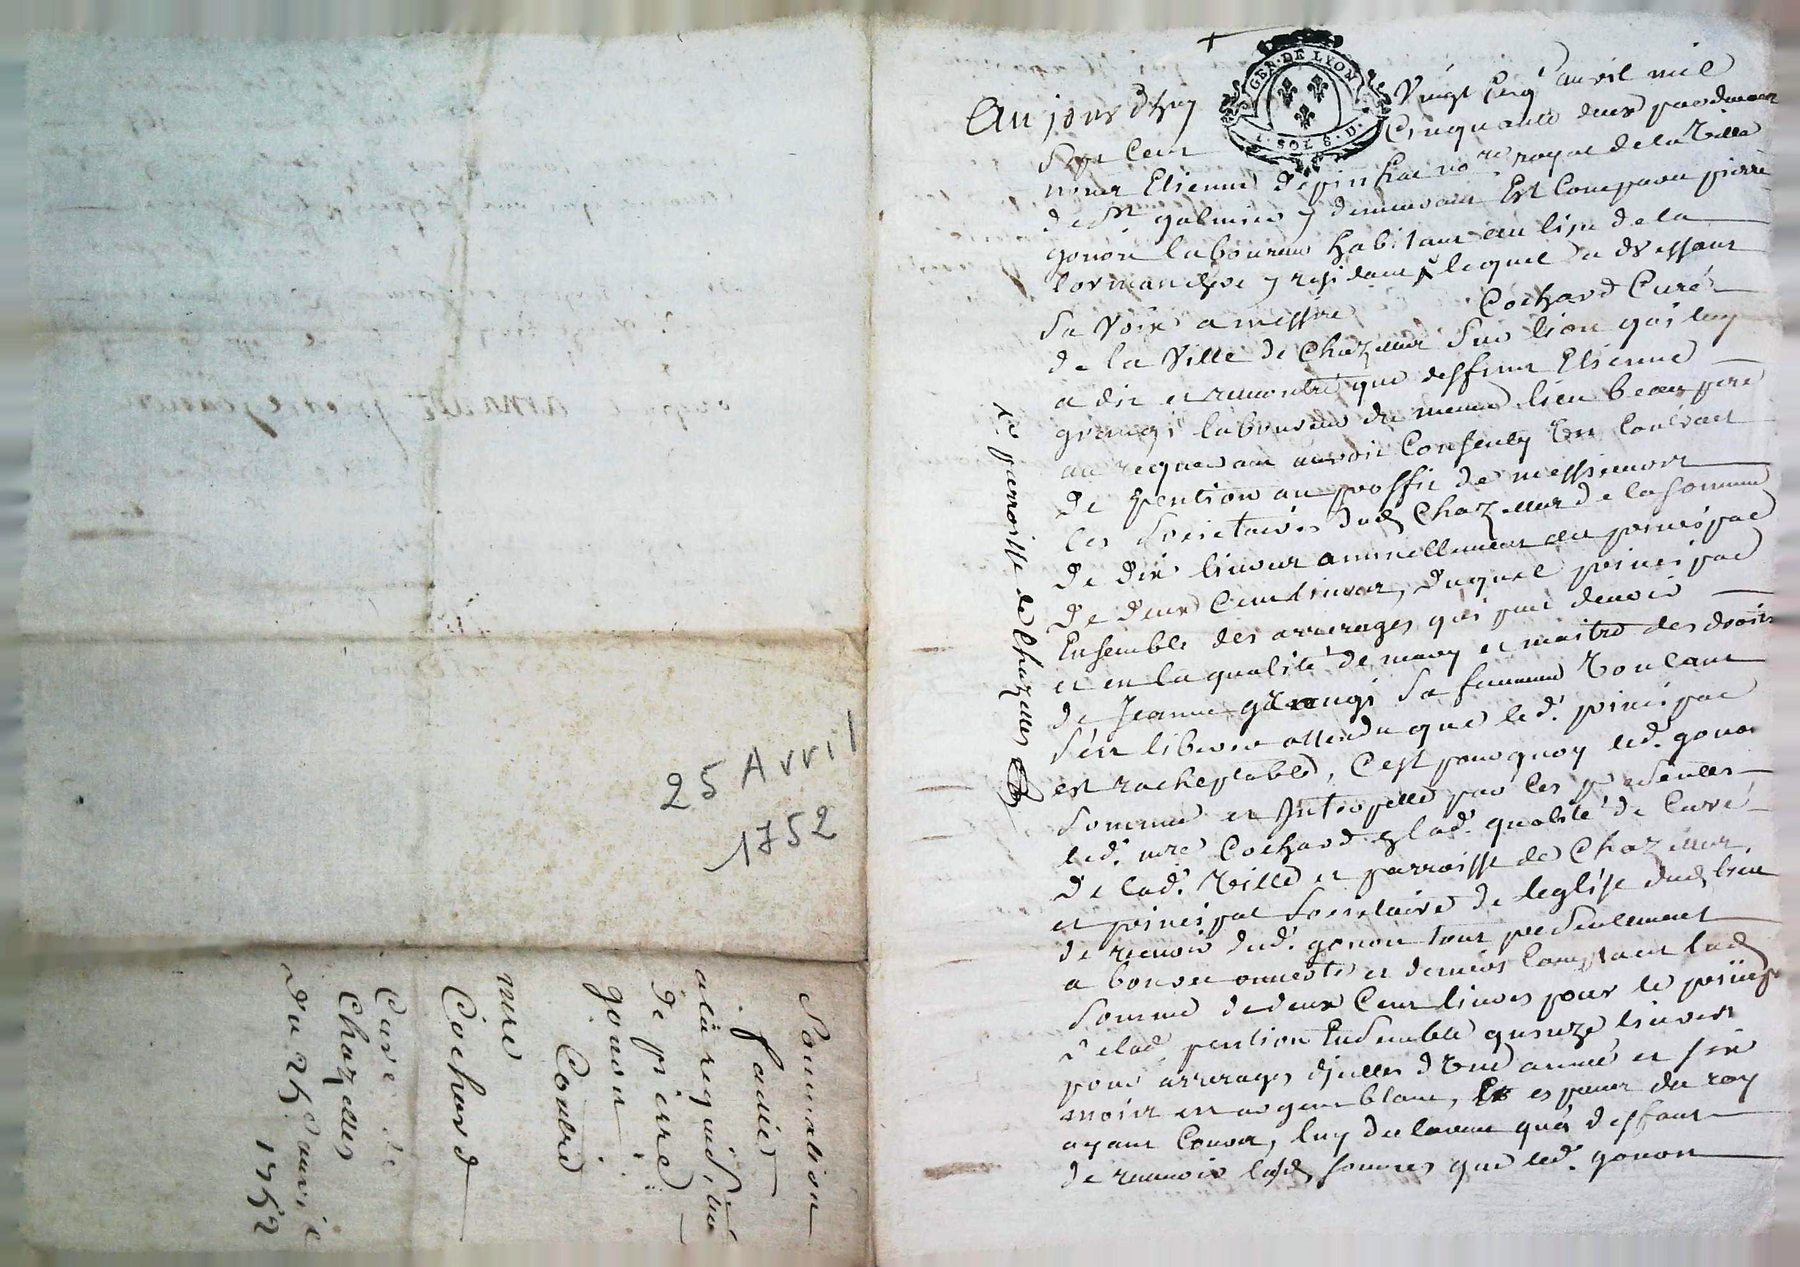 25 Avril
1752
Sommation
faitte
a la requis.
de pierre
gonon
Contre
mre
Cochard
Curé de
Chazelles
du 25e avril
1752
GER. DE LYON
1. SOL 6. D.
Aujourdhuy Vingt Cinq avril mil
Sept Cent Cinquante deux pardevant
nous Etienne no.re royal de la Ville
de St galmier y demeurant Est Comparu pierre
gonon laboureur habitant au lieu de la
y residant lequel a dressant
Sa Voix a messire Cochard Curé
de la Ville de Chazelles Sur lion qui luy
a dit et remontré que deffunt Etienne
grangi laboureur du meme lieu beaupere
du requerant auroit Consenty Un Contrat
de pention au proffit de messieurs
les Societaires dud Chazelles de la Somme
de dix livres annuellement au principal
de deux Cent livres, duquel principal
Ensemble des arrerages qui peut devoir
et en la qualité de mary et maitre des droits
de Jeanne grangi Sa femme Voulant
S'en liberer attendu que led. principal
est racheptable, C'est pourquoy led. gonon
Somme et Interpelle par les presentes
led. mre Cochard lad. qualité de Curé
de lad. Ville et parroisse de Chazelles
et principal Societaire de leglise dud lieu
de recevoir dud. gonon tout presentement
a bource ouverte et deniers Comptant lad
Somme de deux Cent livres pour le principal
de lad pention Ensemble quinze livres
pour arrerages d'icelles d'Une année et six
mois en argent blanc, Et especes du roy
ayant Cours, luy declarant qu'a deffaut
de recevoir lesd Sommes que led. gonon
parroisse de Chazelles